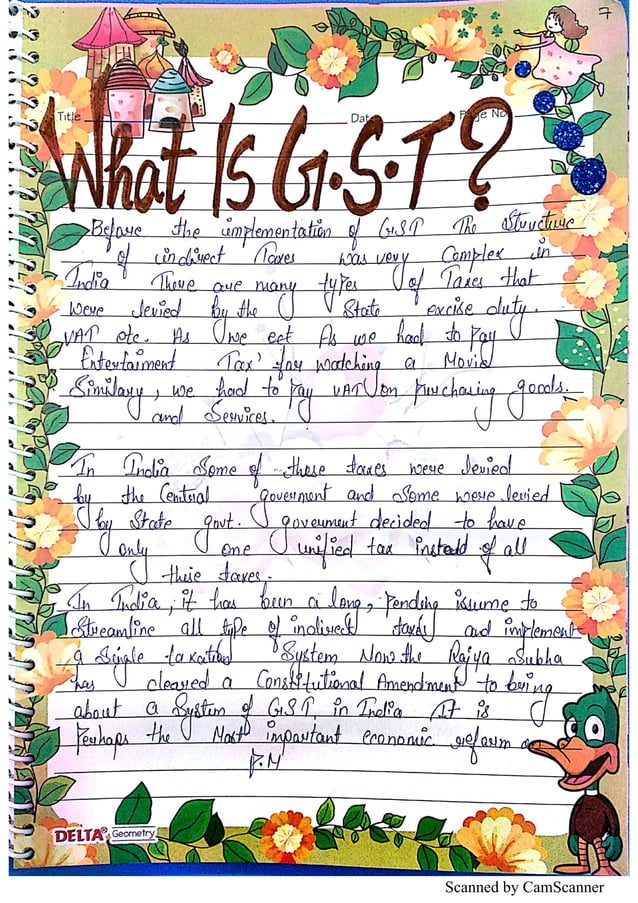 7
Title Date Page No.
What Is G.S.T?
Before the implementation of GST The Structure
of indirect Taxes was very Complex in
India There are many types of Taxes that
were levied by the State excise duty.
VAT etc. As we eet As we had to pay
Entertaiment Tax' for watching a Movie
Similary, we had to pay VAT on purchasing goods.
and Services.
In India Some of these taxes were levied
by the Central goverment and Some were levied
by State govt. goverment decided to have
only one unified tax instead of all
these taxes.
In India, it has been a long, pending issume to
Streamline all type of indirect and implement
a Single taxation System Now the Rajya Subha
has cleared a Constitutional Amendment to bring
about a System of GST, in India It is
Perhaps the Most important economic reform
P.M
DELTA® Geometry
Scanned by CamScanner